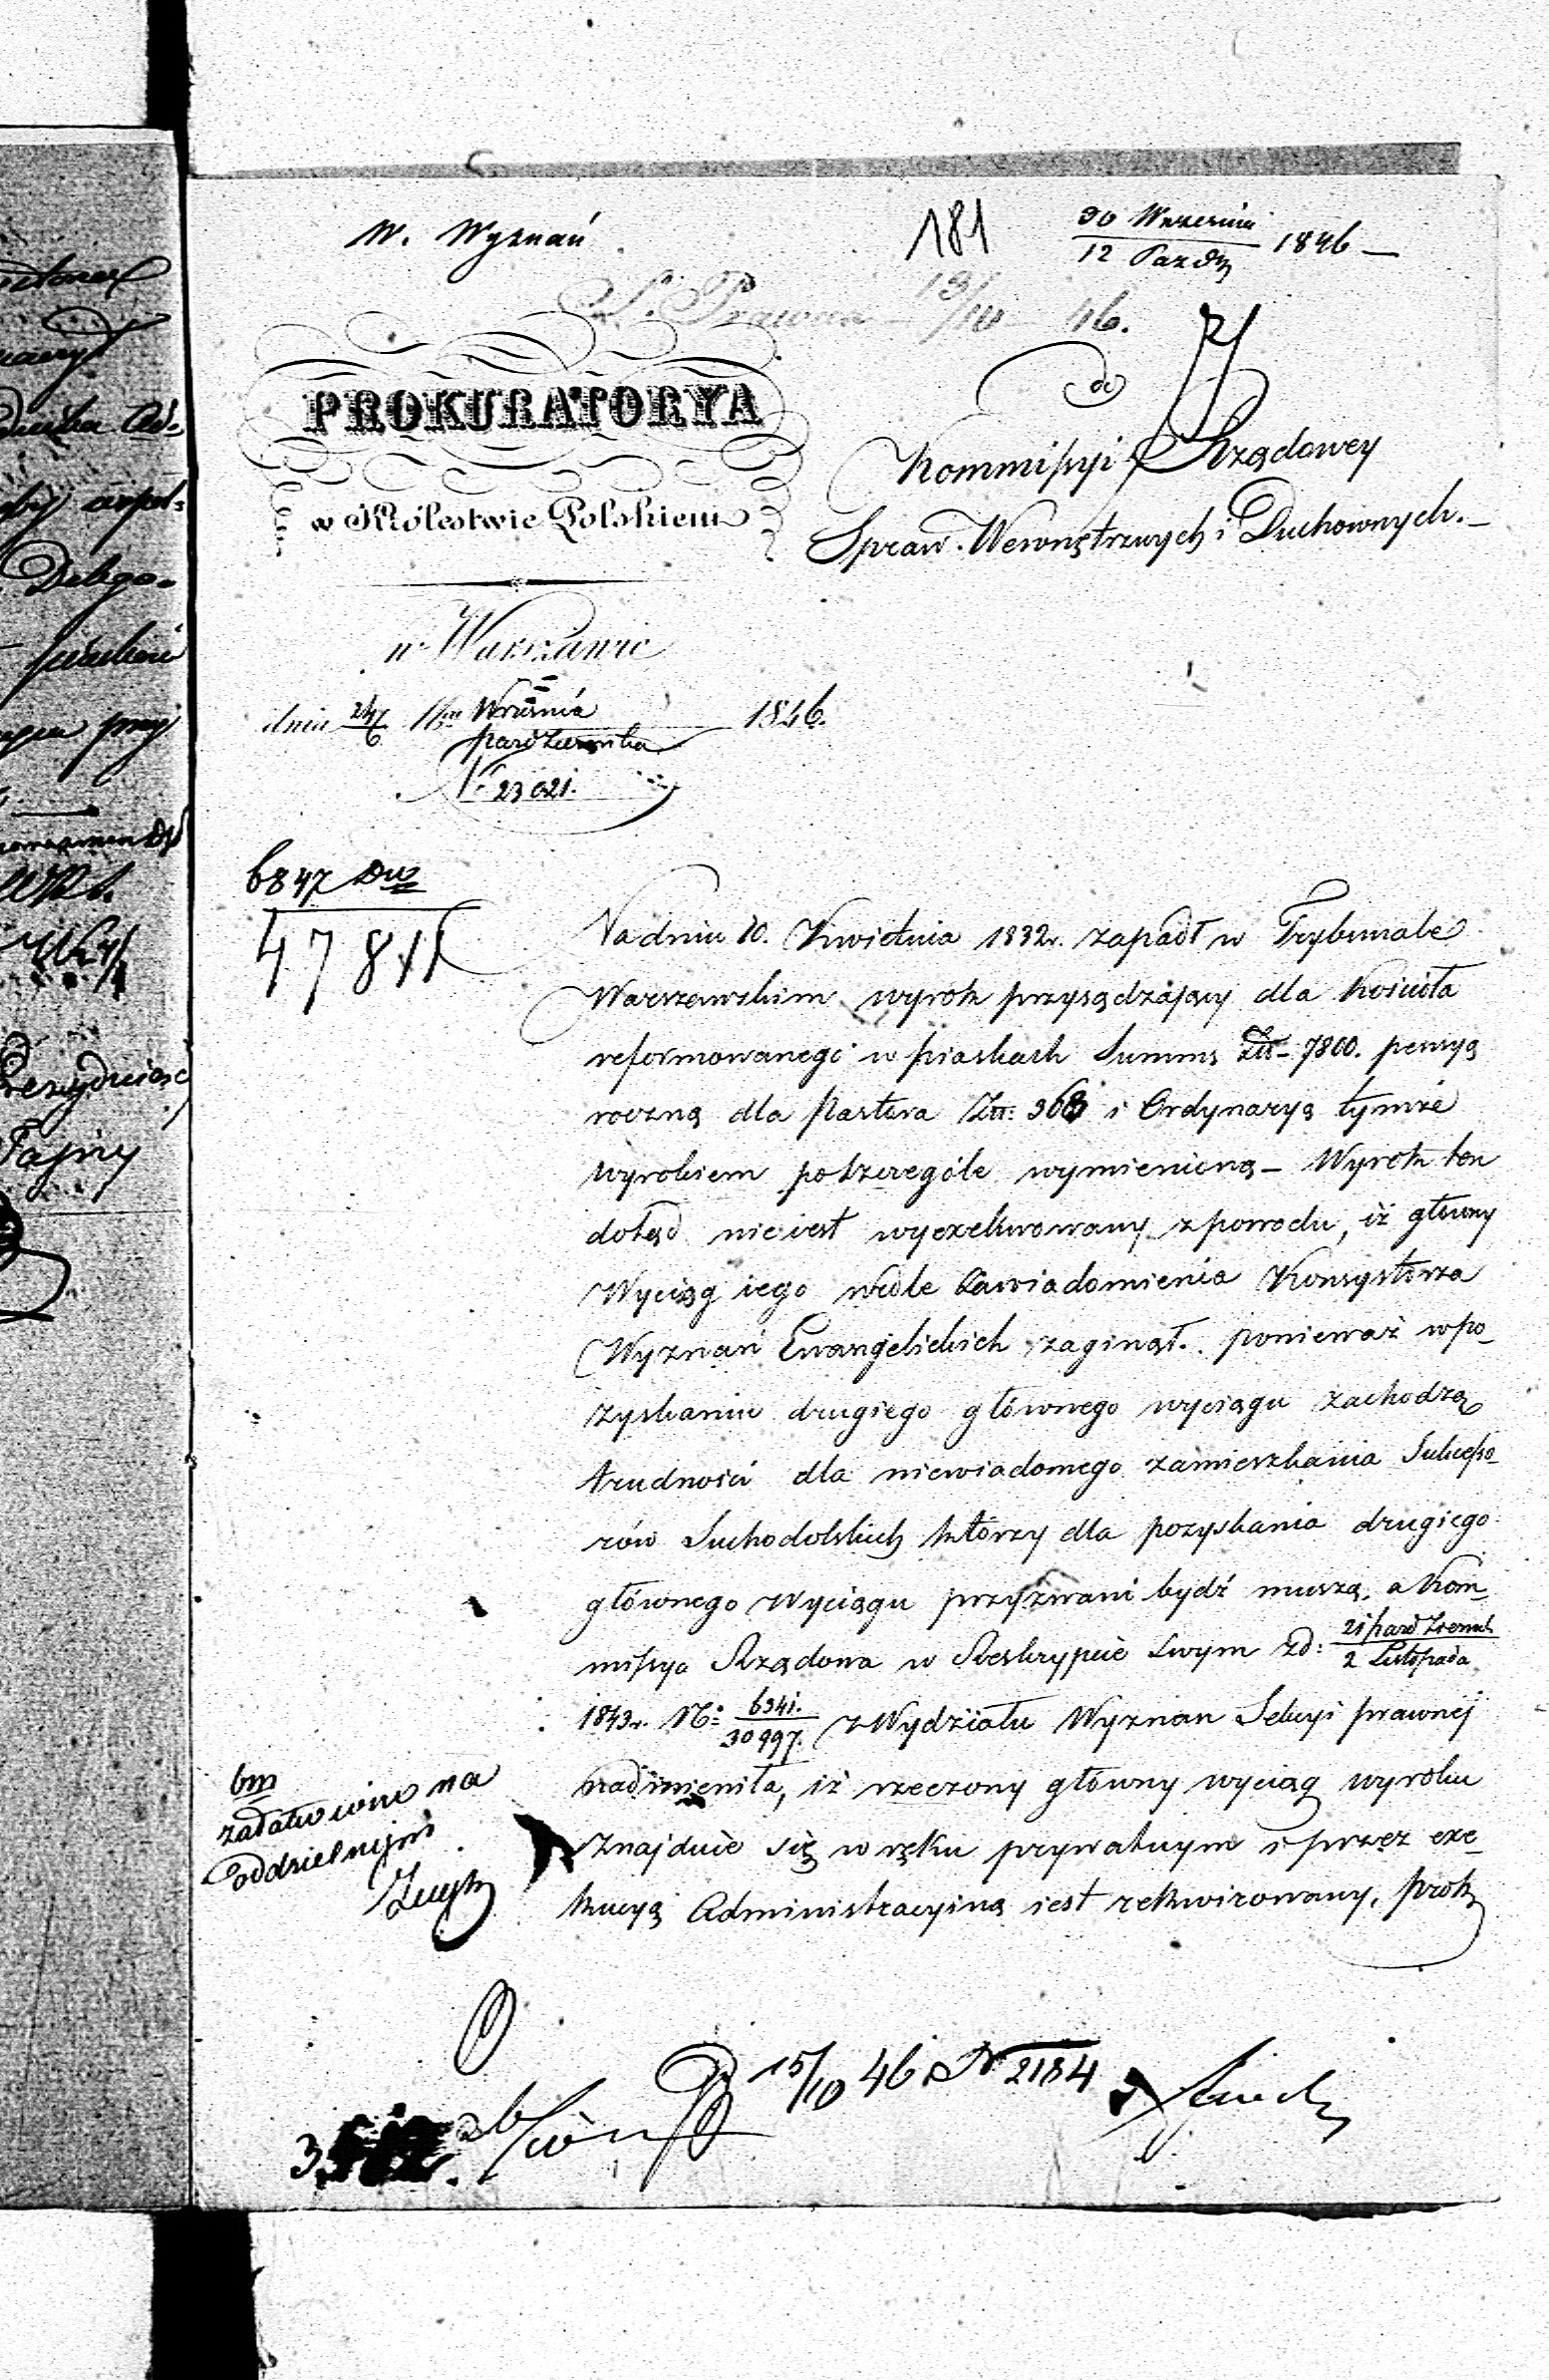 W. Wyznań
181
30 Września
12 Paźdz 1846 —
S. Prawna 13/10 46.
PROKURATORYA
w Królestwie Polskiem
do
Kommissyi Rządowey
Spraw Wewnętrznych i Duchownych.—
w Warszawie
dnia 24/6 Września
Października 1846.
N. 23021.
6847 Dw
Na dniu 10. Kwietnia 1832 r. zapadł w Trybunale
Warszawskim wyrok przysądzający dla Kościoła
reformowanego w piaskach Summę Złł. 7800. pensyą
roczną dla Pastora Złł. 368 i Ordynaryą tymże
wyrokiem poszczególe wymienioną — Wyrok ten
dotąd nie iest wyexekwowany z powodu, iż główny
Wyciąg iego wedle Zawiadomienia Konsystorza
Wyznań Ewangelickich zaginął. ponieważ w po-
zyskaniu drugiego głównego wyciągu zachodzą
trudności dla niewiadomego zamieszkania Sukcesso-
rów Suchodolskich którzy dla pozyskania drugiego
głównego Wyciągu przyzwani bydź muszą, a Kom-
missya Rządowa w Reskrypcie Swym z d: 21 październ
2 Listopada
1843 r. No 6341.
30997. z Wydziału Wyznan Sekcyi prawnej
nadmieniła, iż rzeczony główny wyciąg wyroku
znajduie się w ręku prywatnym i przez exe-
kucyą Administracyiną iest rekwirowany, prok
bm
załatwiono na
oddzielnym
15/10 46 N 2184